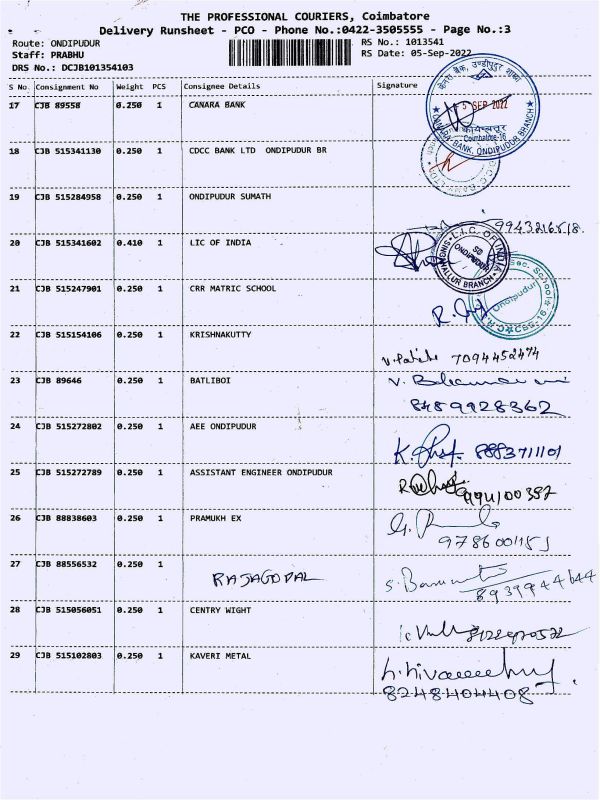 THE PROFESSIONAL COURIERS, Coimbatore
Delivery Runsheet - PCO - Phone No.:0422-3505555 - Page No.:3
Route: ONDIPUDUR
RS No.: 1013541
Staff: PRABHU
RS Date: 05-Sep-2022
DRS No.: DCJB101354103
S No. Consignment No Weight PCS Consignee Details Signature
17 CJB 89558 0.250 1 CANARA BANK
केनरा बैंक, उण्डीपुदूर शाखा
5 SEP 2022
Coimbatore-16
CANARA BANK, ONDIPUDUR BRANCH
18 CJB 515341130 0.250 1 CDCC BANK LTD ONDIPUDUR BR
19 CJB 515284958 0.250 1 ONDIPUDUR SUMATH
9943216818.
20 CJB 515341602 0.410 1 LIC OF INDIA
L.I.C. OF INDIA
SO
ONDIPUDUR
21 CJB 515247901 0.250 1 CRR MATRIC SCHOOL
Sec. School
Ondipudur
CBE-16
22 CJB 515154106 0.250 1 KRISHNAKUTTY
7094452474
23 CJB 89646 0.250 1 BATLIBOI
8489928362
24 CJB 515272802 0.250 1 AEE ONDIPUDUR
8883711101
25 CJB 515272789 0.250 1 ASSISTANT ENGINEER ONDIPUDUR
26 CJB 88838603 0.250 1 PRAMUKH EX
27 CJB 88556532 0.250 1
RAJAGOPAL
8939944644
28 CJB 515056051 0.250 1 CENTRY WIGHT
29 CJB 515102803 0.250 1 KAVERI METAL
8248404408